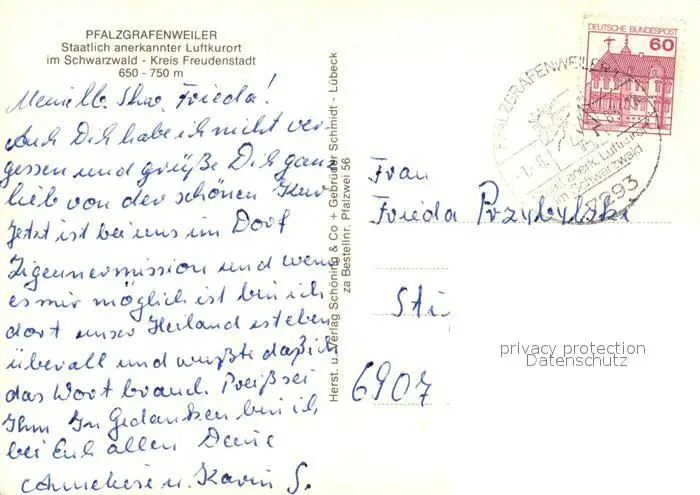 PFALZGRAFENWEILER
Staatlich anerkannter Luftkurort
im Schwarzwald - Kreis Freudenstadt
650 - 750 m
Meine lb. Schw. Frieda!
Auch Dich habe ich nicht ver
gessen und grüße Dich ganz
lieb von der schönen Kur
Jetzt ist bei uns im Dorf
Zigeunermission und wenn
es mir möglich ist bin ich
dort unser Heiland ist eben
überall und wußte daß ich
das Wort brauch. Preiß sei
Ihm In Gedanken bin ich
bei Euch allen Deine
Anneliese u. Karin S.
Herst. u. Verlag Schöning & Co + Gebrüder Schmidt - Lübeck
za Bestellnr. Pfalzwei 56
DEUTSCHE BUNDESPOST
60
PFALZGRAFENWEILER
anerk. Luftkurort
im Schwarzwald
7293
Frau
Frieda Przybylski
6907
privacy protection
Datenschutz